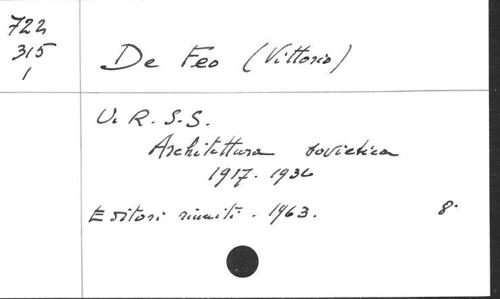 722
315
1
De Feo (Vittorio)
U. R. S. S.
Architettura sovietica
1917. 1936
Editori riuniti. 1963. 8.